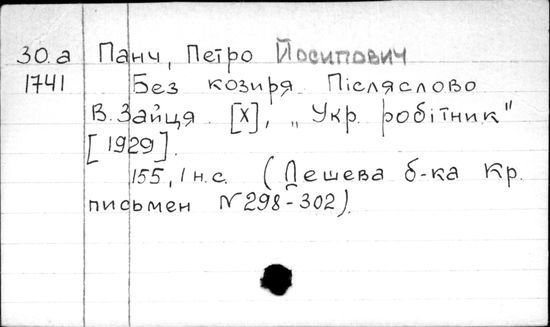 30.а Панч, Петро Йосипович
1741 Без козиря. Післяслово
В. Зайця. [Х], „Укр. робітник"
[1929].
155, 1 н.с. (Дешева б-ка кр.
письмен №298-302).